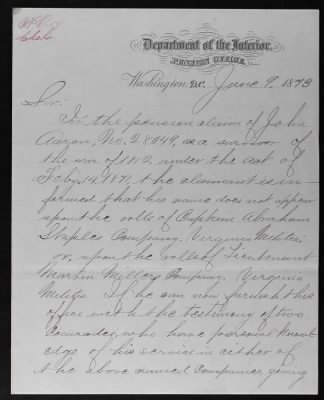 Department of the Interior,
PENSION OFFICE,
Washington, D.C. June 9, 1873
Sir:
In the pension claim of John
No. 28049, as a survivor of
the war of 1812, under the act of
Feby. 14, 1871, the claimant is in-
formed that his name does not appear
upon the rolls of Captain Abraham
Staples Company Virginia Militia;
or, upon the rolls of Lieutenant
Martin Millers Company Virginia
Militia. If he can now furnish this
office with the testimony of two
Comrades, who have personal knowl-
edge of his service in either of
the above named Companies, giving